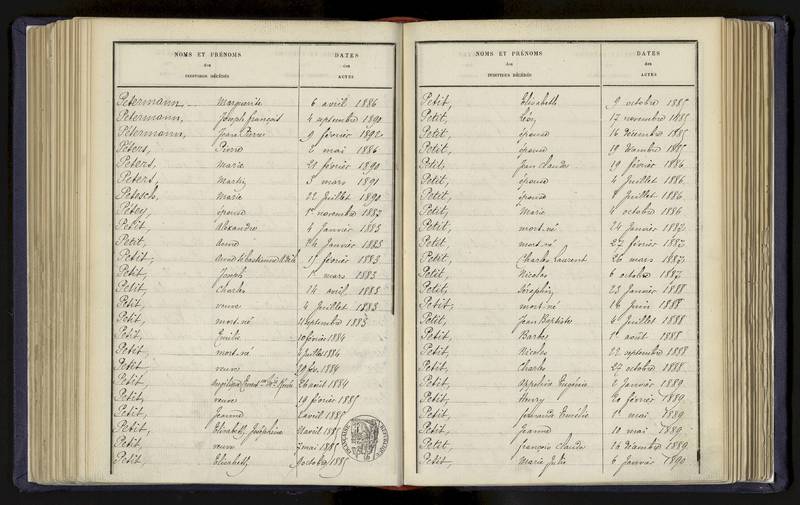 NOMS ET PRÉNOMS
des
INDIVIDUS DÉCÉDÉS
DATES
des
ACTES
Petermann, Marguerite 6 avril 1886
Petermann, Joseph françois 4 septembre 1890
Petermann, Jean Pierre 9 février 1892
Péters, Pierre 2 mai 1886
Peters, Marie 21 février 1890
Peters, Martin 3 mars 1891
Petesch, Marie 22 Juillet 1890
Pétey, épouse 1er novembre 1887
Petit, alexandre 4 Janvier 1883
Petit, 14 Janvier 1883
Petit, 17 février 1883
Petit, Joseph 1er mars 1883
Petit, Charles 14 avril 1883
Petit, veuve 4 Juillet 1883
Petit, mort-né septembre 1883
Petit, Emilie 10 février 1884
Petit, mort-né Juillet 1884
Petit, veuve 29 fév. 1884
Petit, 26 août 1884
Petit, veuve 19 février 1885
Petit, Jeanne avril 1885
Petit, Elisabeth Joséphine avril 1885
Petit, veuve 7 mai 1885
Petit, Elisabeth, 9 octobre 1885
NOMS ET PRÉNOMS
des
INDIVIDUS DÉCÉDÉS
DATES
des
ACTES
Petit, Elisabeth 9 octobre 1885
Petit, Léon, 17 novembre 1885
Petit, épouse 16 Décembre 1885
Petit, épouse 19 Décembre 1885
Petit, Jean Claude 19 février 1886
Petit, épouse 4 Juillet 1886
Petit, épouse 8 Juillet 1886
Petit, Marie 4 octobre 1886
Petit, mort-né 24 Janvier 1887
Petit, mort-né 27 février 1887
Petit, Charles Laurent 26 mars 1887
Petit, Nicolas 6 octobre 1887
Petit, Séraphin, 23 Janvier 1888
Petit, mort-né 16 Juin 1888
Petit, Jean Baptiste 4 Juillet 1888
Petit, Barbe 1er août 1888
Petit, Nicolas 22 septembre 1888
Petit, Charles 27 octobre 1888
Petit, Eugénie 2 Janvier 1889
Petit, Henry 20 février 1889
Petit, Emélie 1er mai 1889
Petit, Jeanne 10 mai 1889
Petit, françois claude 26 Décembre 1889
Petit, Marie Julie 6 Janvier 1890